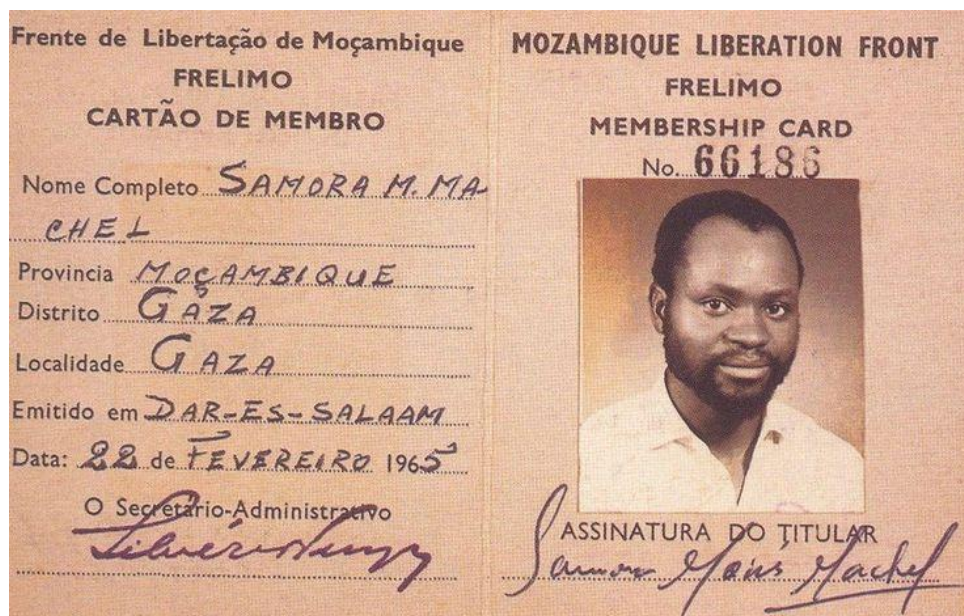 Frente de Libertação de Moçambique
FRELIMO
CARTÃO DE MEMBRO
Nome Completo SAMORA M. MA-
CHEL
Provincia MOÇAMBIQUE
Distrito GAZA
Localidade GAZA
Emitido em DAR-ES-SALAAM
Data: 22 de FEVEREIRO 1965
O Secretário-Administrativo
MOZAMBIQUE LIBERATION FRONT
FRELIMO
MEMBERSHIP CARD
No. 66186
ASSINATURA DO TITULAR
Samora Moisés Machel